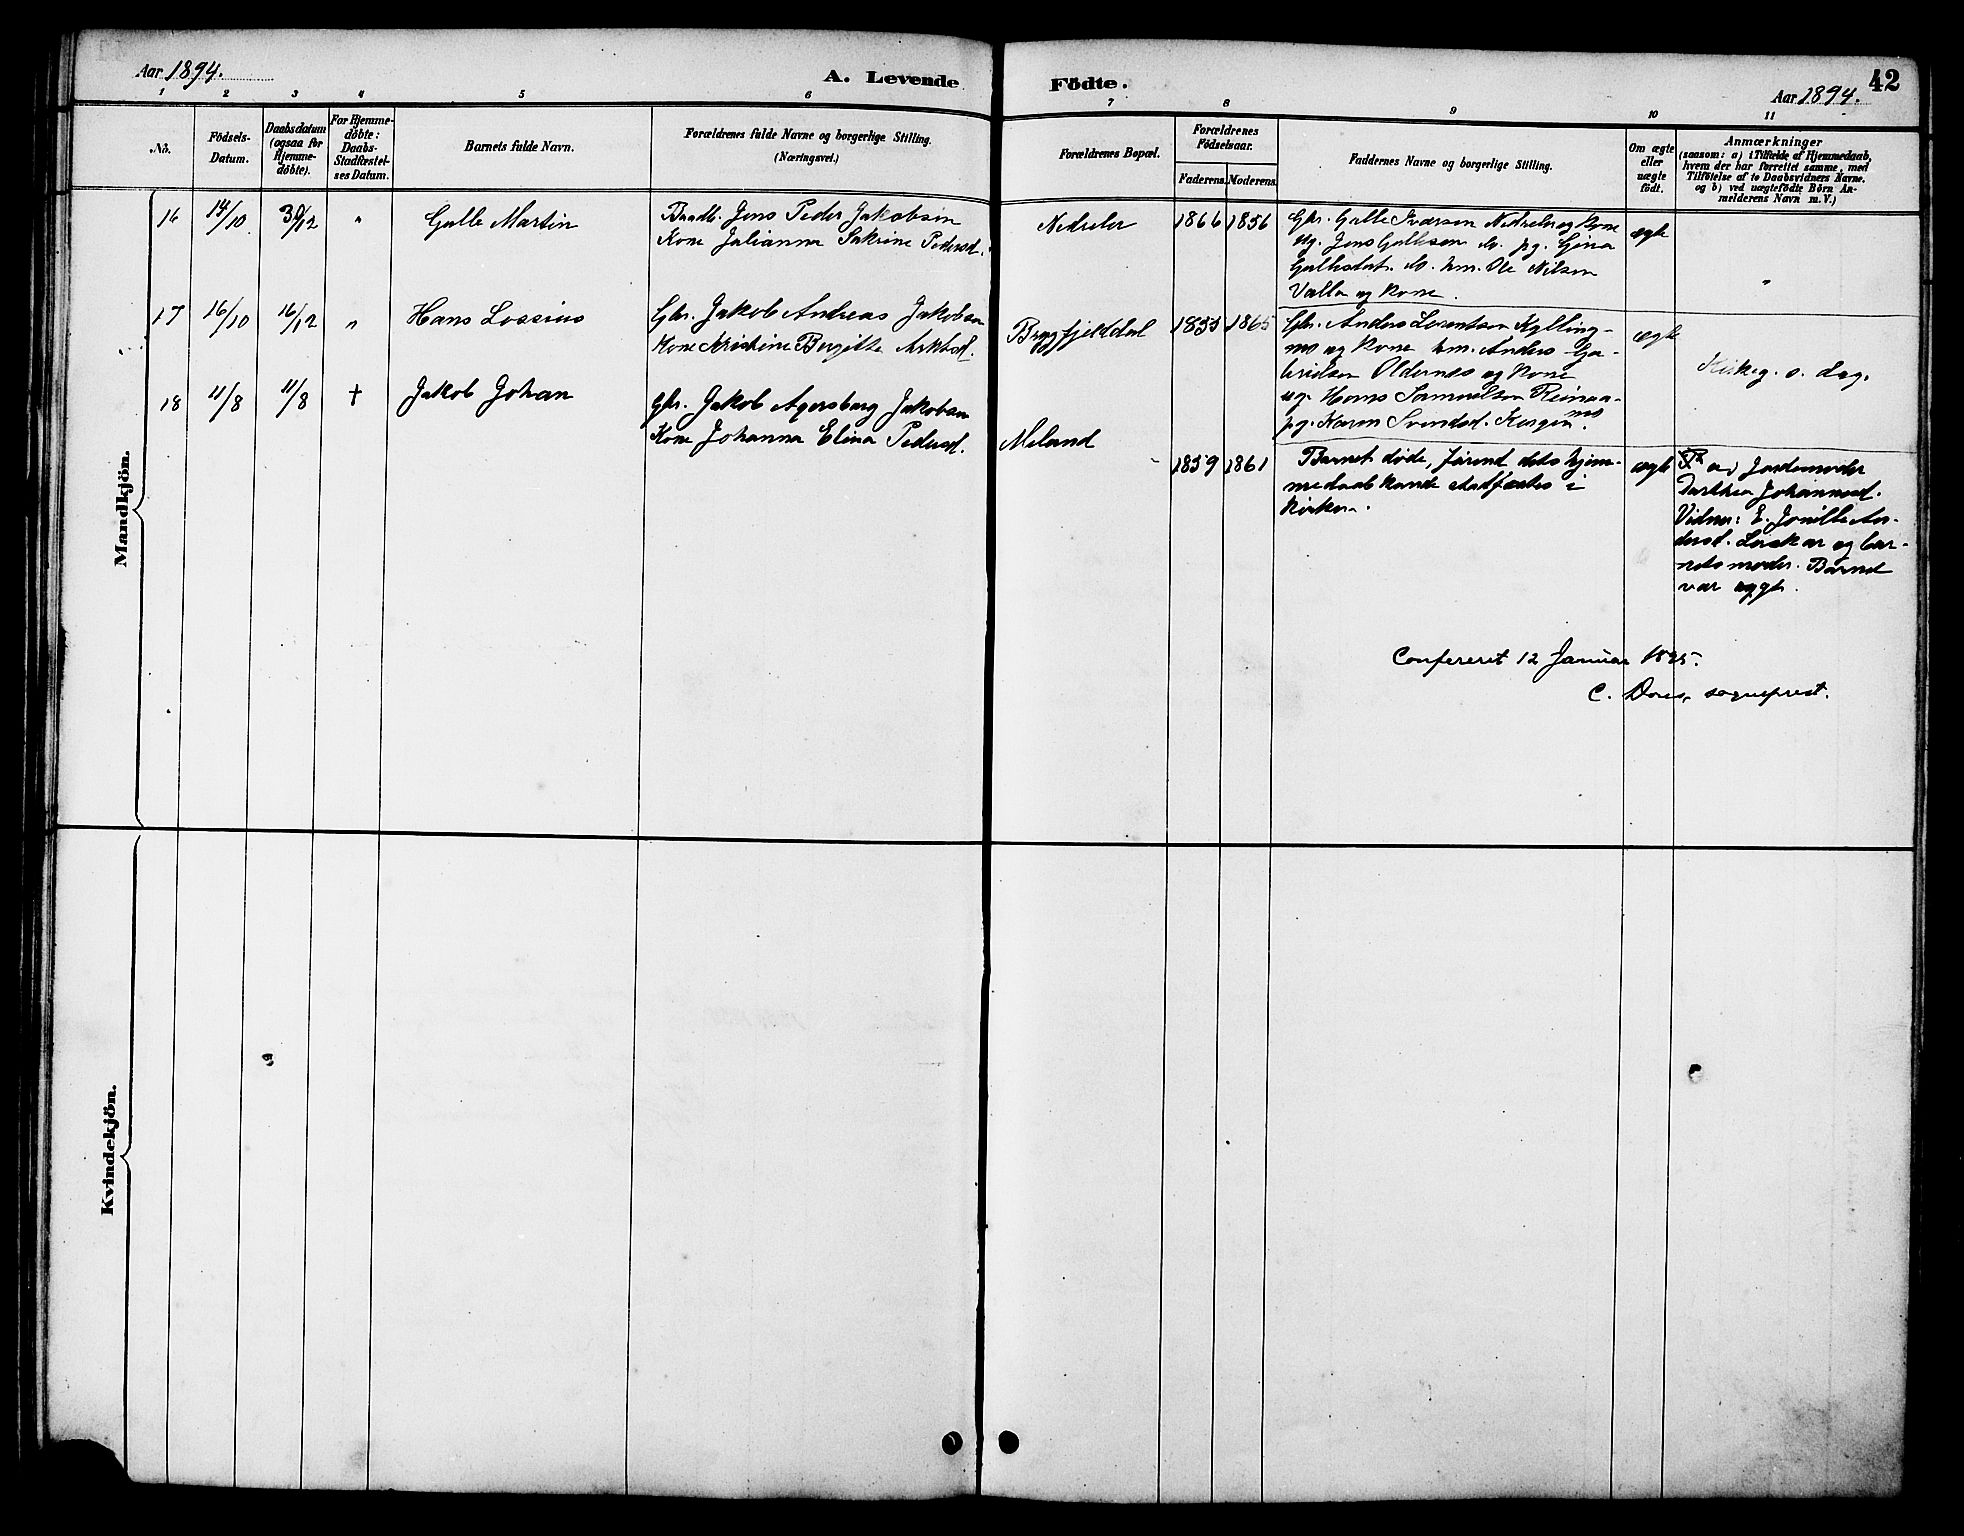 Aar 1894.
A. Levende
Födte.
Aar 1894.
42
1 2 3 4 5 6 7 8 9 10 11
No.
Födsels-
Datum.
Daabsdatum
(ogsaa for
Hjemme-
döbte).
For Hjemme-
döbte:
Daabs-
Stadfæstel-
ses Datum.
Barnets fulde Navn.
Forældrenes fulde Navne og borgerlige Stilling.
(Næringsvei.)
Forældrenes Bopæl.
Forældrenes
Födselsaar.
Faderens. Moderens.
Faddernes Navne og borgerlige Stilling.
Om ægte
eller
uægte
födt.
Anmærkninger
(saasom: a) i Tilfælde af Hjemmedaab,
hvem der har forrettet samme, med
Tilföielse af to Daabsvidners Navne.
og b) ved uægtefödte Börn An-
melderens Navn m. V.)
Mandkjön.
16 14/10 30/12 " Galle Martin
Jens Peder Jakobsen
Kone Julianna Sakrine Pedersd.
Nedreler
1866 1856
Gbr. Galle Iversen Nedreler og Kone
ug. Jens Gallesen do. pg. Gina
do. hm. Ole Nilsen
Valla og Kone.
ægte
"
17 16/10 16/12 " Hans Lossius
Gbr. Jakob Andreas Jakobsen
Kone Kristine Bergitte
Bryggfjelddal
1855 1865
Gbr. Anders Lorentsen Kylling-
mo og Kone hm. Anders Ga-
brielsen Oldernes og Kone
ug. Hans Samuelsen
pg. Karen Svendsd. Korgen.
ægte
Kirkeg. s. dag.
18 11/8 11/8 † Jakob Johan
Gbr. Jakob Agersborg Jakobsen
Kone Johanna Elina Pedersd.
Meland
1859 1861
Barnet døde, førend dets hjem-
medaab kunde stadfæstes i
kirken.
ægte
av Jordemoder
Dorthea Johannesd.
Vidner: E. Jonille An-
dersd. Leskar og bar-
nets moder. Barnet
var sygt.
Confereret 12 Januar 1895.
C. sogneprest.
Kvindekjön.